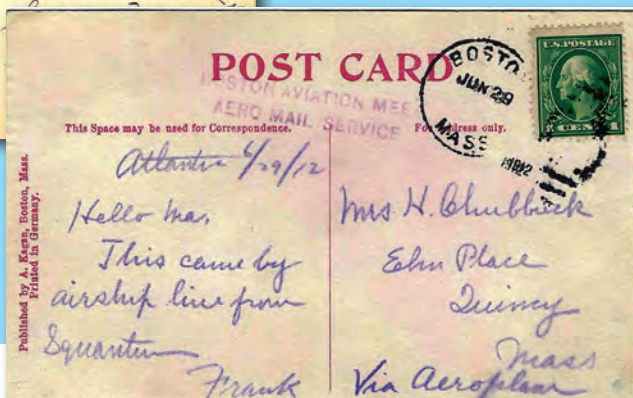 POST CARD
BOSTON AVIATION MEE
AERO MAIL SERVICE
BOSTO
JUN 29
MASS
1912
U.S. POSTAGE
This Space may be used for Correspondence.
For Address only.
Published by A. Kagan, Boston, Mass.
Printed in Germany.
Atlantic 6/29/12
Hello Ma,
This came by
airship line from
Squantum
Frank
Mrs H. Chubbuck
Elm Place
Quincy
Mass
Via Aeroplane